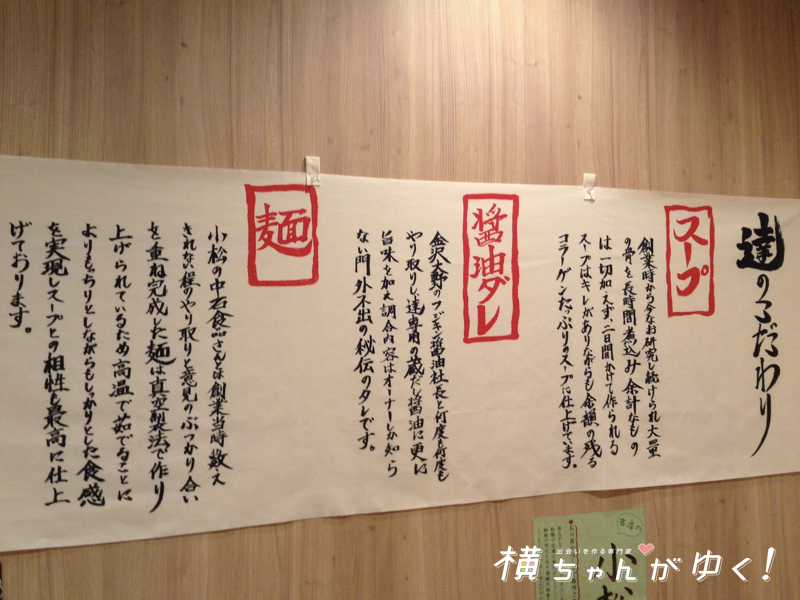 達のこだわり
スープ
創業時から今なお研究し続けられ大量
の骨を長時間煮込み余計なもの
は一切加えず、二日間かけて作られる
スープはキレがありながらも余韻の残る
コラーゲンたっぷりのスープに仕上げています。
醤油ダレ
金沢大野のフジキン醤油社長と何度も何度も
やり取りし、達専用の蔵だし醤油に更に
旨味を加え調合内容はオーナーしか知ら
ない門外不出の秘伝のタレです。
麺
小松の中石食品さんとは創業当時数え
きれない程のやり取りと意見のぶつかり合い
を重ね完成した麺は真空製法で作り
上げられているため高温で茹でることに
よりもっちりとしながらもしっかりとした食感
を実現しスープとの相性を最高に仕上
げております。
小松
出会いを作る専門家
横ちゃんがゆく!